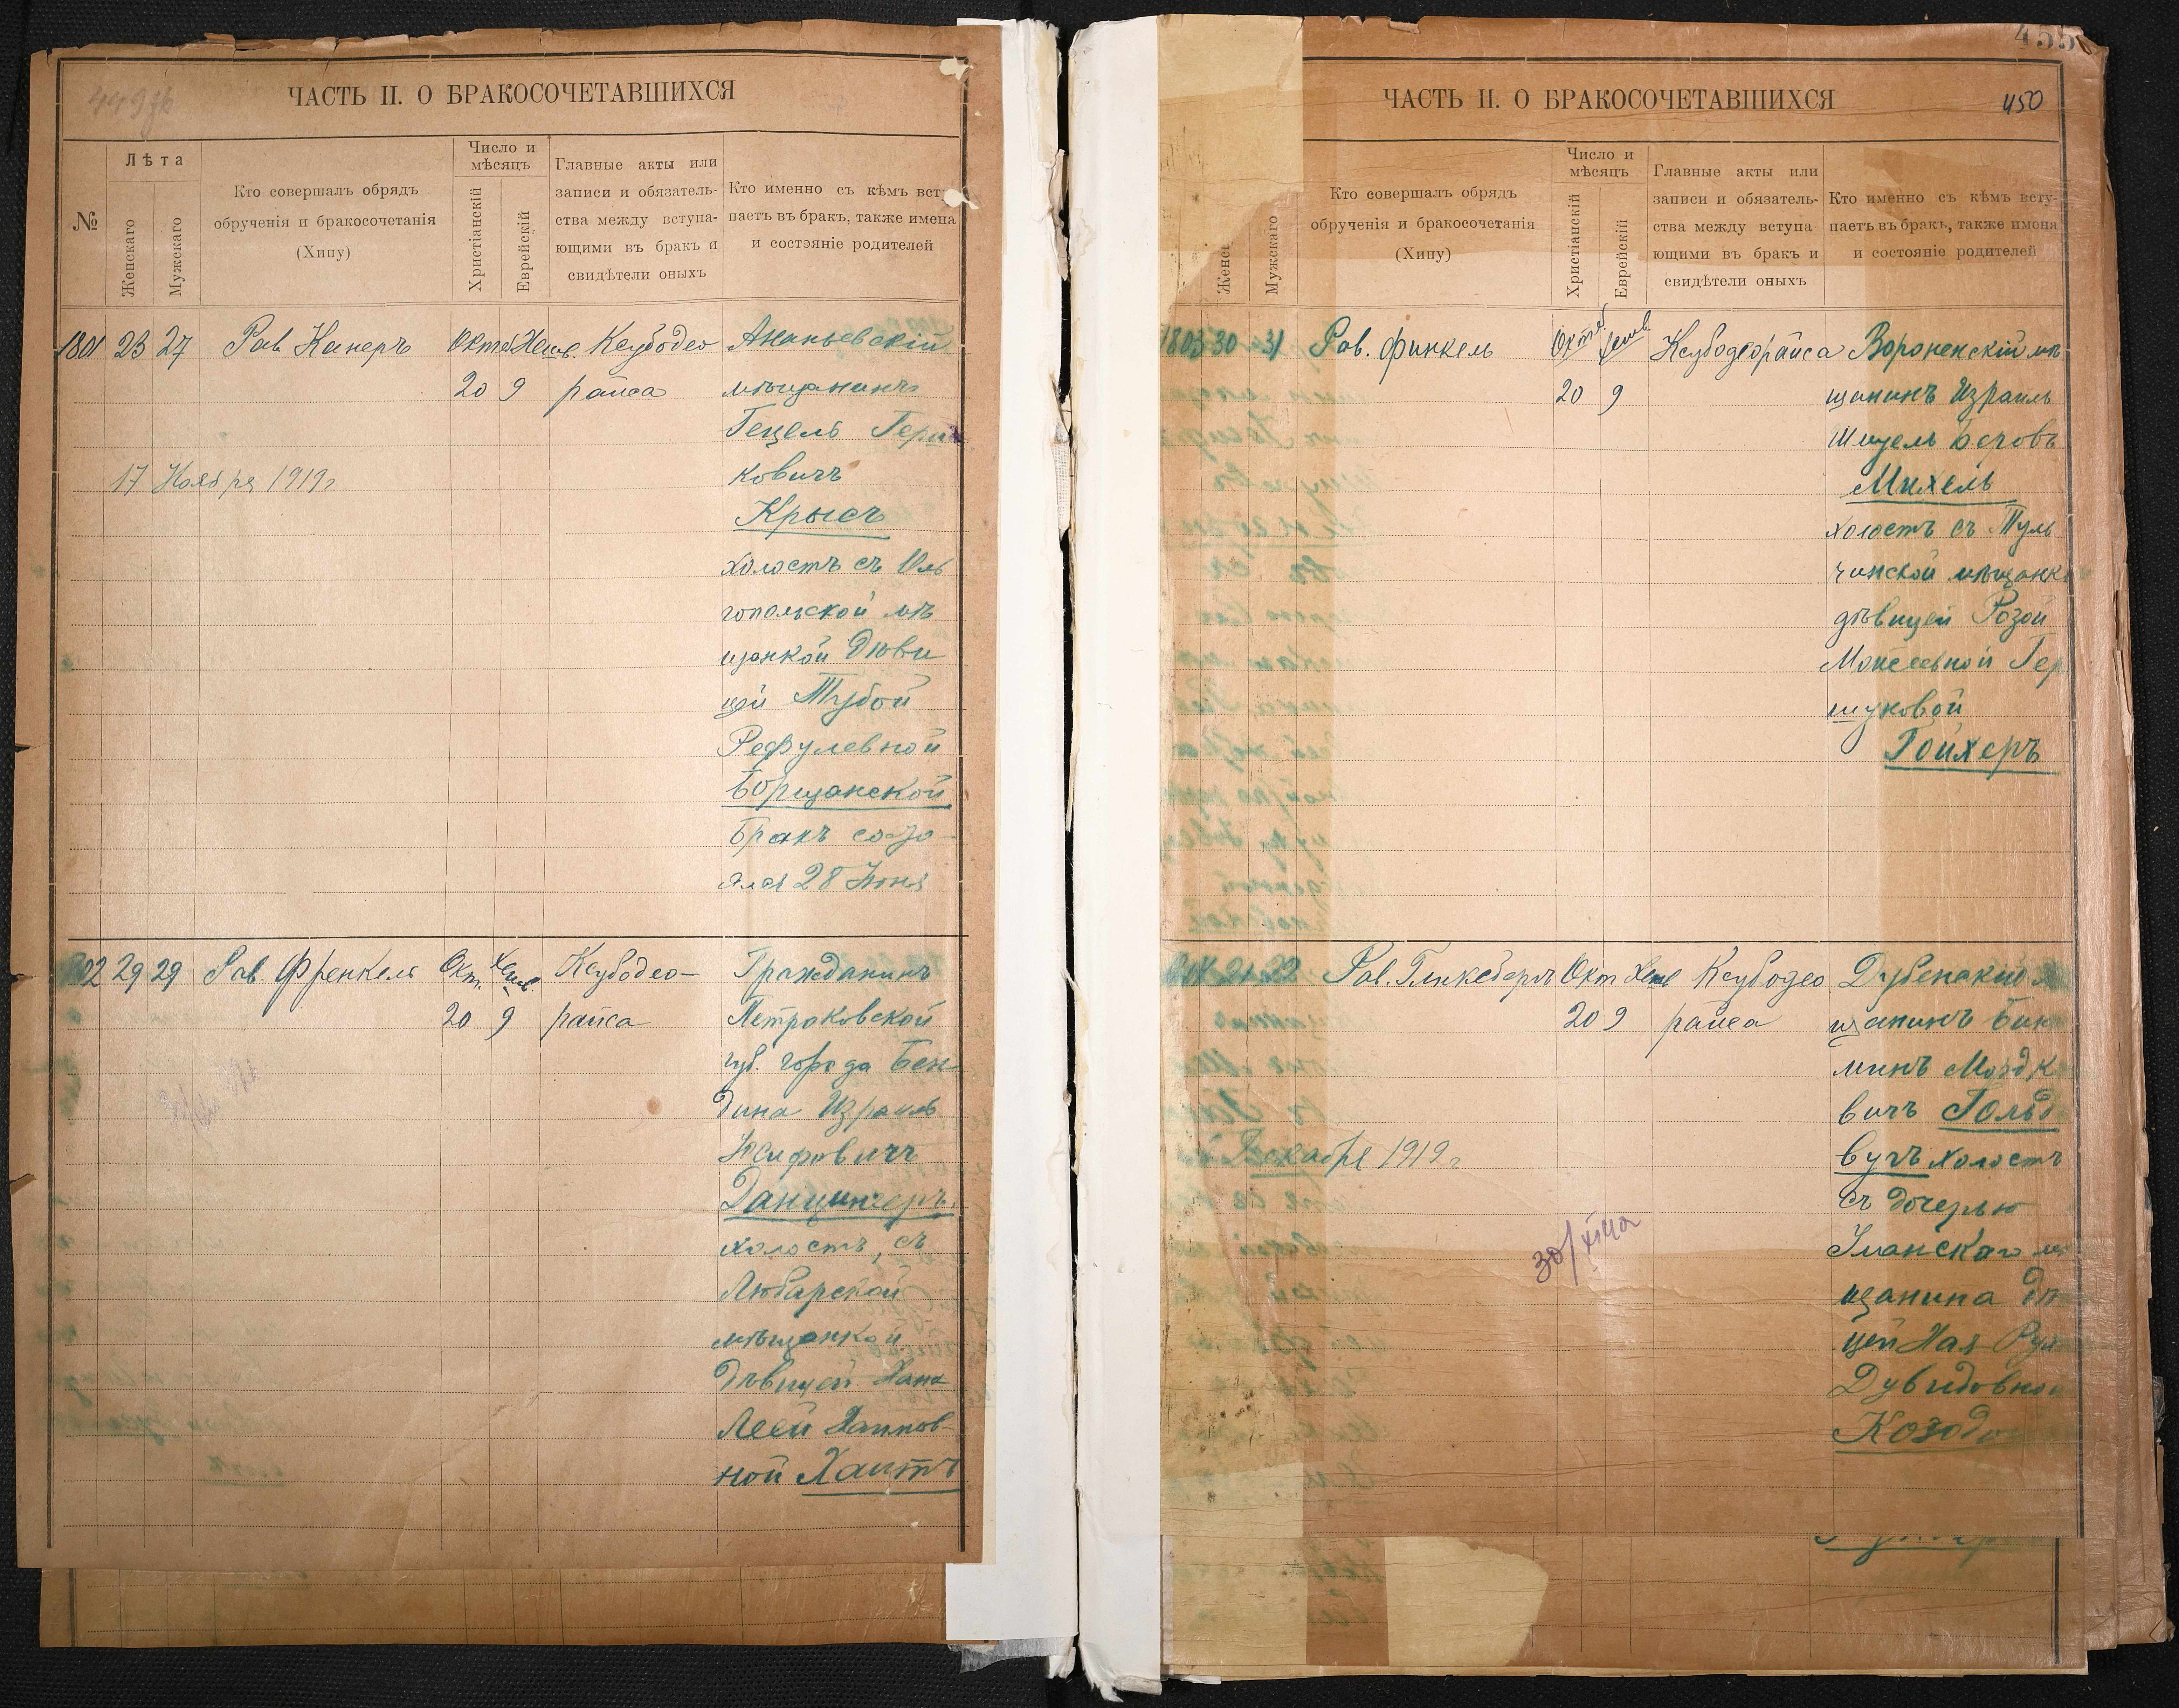 449 об
ЧАСТЬ II. О БРАКОСОЧЕТАВШИХСЯ
№
Лѣта
Женскаго
Мужскаго
Кто совершалъ обрядъ
обрученія и бракосочетанія
(Хипу)
Число и
мѣсяцъ
Христіанскій
Еврейскій
Главные акты или
записи и обязатель-
ства между вступа-
ющими въ бракъ и
свидѣтели оныхъ
Кто именно съ кѣмъ всту
паетъ въ бракъ, также имена
и состояніе родителей
1801 23 27 Рав. Канеръ Окт. Хешв. Ксубодео
20 9 райса
17 Ноября 1919 г
Ананьевскій
мѣщанинъ
Гецель Герш
ковичъ
Крысъ
холостъ съ Оль
гопольской мѣ
щанкой дѣви
цей Тубой
Рефулевной
Борщанской
Бракъ состо
ялся 28 Июня
802 29 29 Рав. Френкель Окт. Хешв. Ксубодео-
20 9 райса
Гражданинъ
Петроковской
губ. города Бен
дина Израиль
Юсифовичъ
Данцингеръ
холостъ, съ
Любарской
мѣщанкой
дѣвицей Хана
Леей Хаимов-
ной Хаитъ
455
450
ЧАСТЬ II. О БРАКОСОЧЕТАВШИХСЯ
Женск
Мужскаго
Кто совершалъ обрядъ
обрученія и бракосочетанія
(Хипу)
Число и
мѣсяцъ
Христіанскій
Еврейскій
Главные акты или
записи и обязатель-
ства между вступа
ющими въ бракъ и
свидѣтели оныхъ
Кто именно съ кѣмъ всту-
паетъ въ бракъ, также имена
и состояніе родителей
1803 30 31 Рав. Финкель Окт. Хешв. Ксубодеорайса
20 9
Вороненскій мѣ
щанинъ Израиль
Шицель Беровъ
Михель
холостъ съ Туль
чинской мѣщанк
дѣвицей Розой
Моисеевной Гер
шуковой
Гойхеръ
1804 21 22 Рав. Гликсбергъ Окт Хешв Ксубодео
20 9 райса
Декабря 1919 г
Дубенскій м
щанинъ Бин
минъ Мордк
вичъ Гольд
бугъ холостъ
съ дочерью
Уманскаго м
щанина дѣ
цей Хая Рух
Дувидовно
Козодо